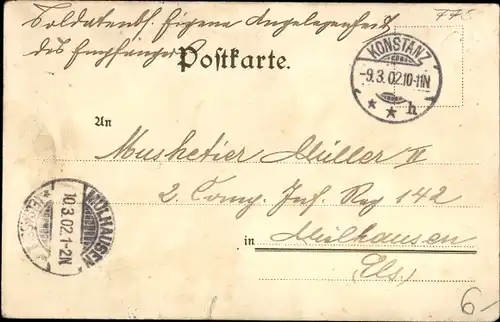 Soldatenbf. Eigene Angelegenheit
des Empfängers
775
Postkarte.
KONSTANZ
-9.3.02.10-11N
* * h
An
Musketier Müller II
2. Comp. Inf. Reg 142
in Mülhausen
(Els.)
MÜLHAUSEN
10.3.02.1-2N
6-